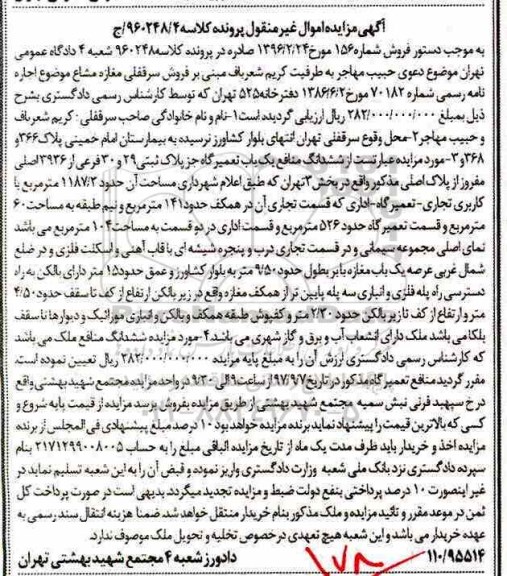 آگهی مزایده اموال غیر منقول پرونده کلاسه ۹۶۰۲۴۸/۴/ج
به موجب دستور فروش شماره ۱۵۶ مورخ ۱۳۹۶/۲/۲۴ صادره در پرونده کلاسه ۹۶۰۲۴۸ شعبه ۴ دادگاه عمومی
تهران موضوع دعوی حبیب مهاجر به طرفیت کریم شعرباف مبنی بر فروش سرقفلی مغازه مشاع موضوع اجاره
نامه رسمی شماره ۷۰۱۸۲ مورخ ۱۳۸۶/۶/۲ دفترخانه ۵۲۵ تهران که توسط کارشناس رسمی دادگستری بشرح
ذیل بمبلغ ۲۸۲/۰۰۰/۰۰۰/۰۰۰ ریال ارزیابی گردیده است ۱-نام و نام خانوادگی صاحب سرقفلی: کریم شعرباف
و حبیب مهاجر ۲-محل وقوع سرقفلی تهران انتهای بلوار کشاورز نرسیده به بیمارستان امام خمینی پلاک ۳۶۶ و
۳۶۸ و ۳-مورد مزایده عبارتست از ششدانگ منافع یک باب تعمیرگاه جز پلاک ثبتی ۲۹ و ۳۰ فرعی از ۳۹۳۶ اصلی
مفروز از پلاک اصلی مذکور واقع در بخش ۳ تهران که طبق اعلام شهرداری مساحت آن حدود ۱۱۸۷/۲ مترمربع با
کاربری تجاری-تعمیرگاه-اداری که قسمت تجاری آن در همکف حدود ۱۴۱ متر مربع و نیم طبقه به مساحت ۶۰
مترمربع و قسمت تعمیرگاه حدود ۵۲۶ مترمربع و قسمت اداری در دو قسمت به مساحت ۱۰۴ مترمربع می باشد
نمای اصلی مجموعه سیمانی و در قسمت تجاری درب و پنجره شیشه ای با قاب آهنی و اسکلت فلزی و در ضلع
شمال غربی عرصه یک باب مغازه با بر بطول حدود ۹/۵۰ متر به بلوار کشاورز و عمق حدود ۱۵ متر دارای بالکن به راه
دسترسی راه پله فلزی و انباری سه پله پایین تر از همکف مغازه واقع در زیر بالکن ارتفاع از کف تا سقف حدود ۴/۵۰
متر و ارتفاع از کف تا زیر بالکن حدود ۲/۳۰ متر و کفپوش طبقه همکف و بالکن و انباری موزائیک و دیوارها تا سقف
بلکا می باشد ملک دارای انشعاب آب و برق و گاز شهری می باشد ۴-مورد مزایده ششدانگ منافع ملک می باشد
که کارشناس رسمی دادگستری ارزش آن را به مبلغ پایه مزایده ۲۸۲/۰۰۰/۰۰۰/۰۰۰ ریال تعیین نموده است.
مقرر گردید منافع تعمیرگاه مذکور در تاریخ ۹۷/۹/۷ از ساعت ۹ الی ۹/۳۰ در واحد مزایده مجتمع شهید بهشتی واقع
در خ سپهبد قرنی نبش سمیه مجتمع شهید بهشتی از طریق مزایده بفروش برسد مزایده از قیمت پایه شروع و
کسی که بالاترین قیمت را پیشنهاد نماید برنده مزایده خواهد بود ۱۰ درصد مبلغ پیشنهادی فی المجلس از برنده
مزایده اخذ و خریدار باید ظرف مدت یک ماه از تاریخ مزایده الباقی مبلغ را به حساب ۲۱۷۱۲۹۹۰۰۸۰۰۵ بنام
سپرده دادگستری نزد بانک ملی شعبه وزارت دادگستری واریز نموده و قبض آن را به این شعبه تسلیم نماید در
غیر اینصورت ۱۰ درصد پرداختی بنفع دولت ضبط و مزایده تجدید میگردد بدیهی است در صورت پرداخت کل
ثمن در موعد مقرر و تائید مزایده و ملک مذکور بنام خریدار منتقل خواهد شد. ضمنا هزینه انتقال سند رسمی به
عهده خریدار می باشد و این شعبه هیچ تعهدی در خصوص تخلیه و تحویل ملک موصوف ندارد.
۱۱۰/۹۵۵۱۴ دادورز شعبه ۴ مجتمع شهید بهشتی تهران
۱۷۸